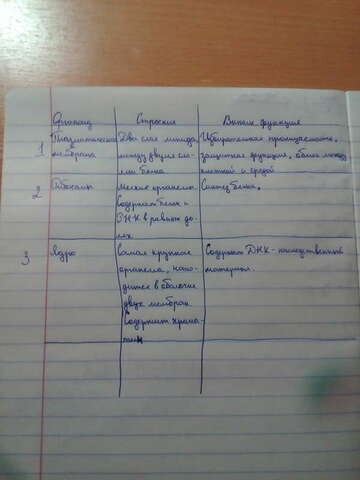 Органоид Строение Выполн. функция
1 Плазматическая мембрана Два слоя липида между двумя слоями белка Избирательная проницаемость, защитная функция, обмен между клеткой и средой
2 Рибосомы Мелкие органеллы. Содержат белок и РНК в равных долях Синтез белка.
3 Ядро Самая крупная органелла, находится в оболочке двух мембран. Содержит хроматин Содержит ДНК - наследственный материал.